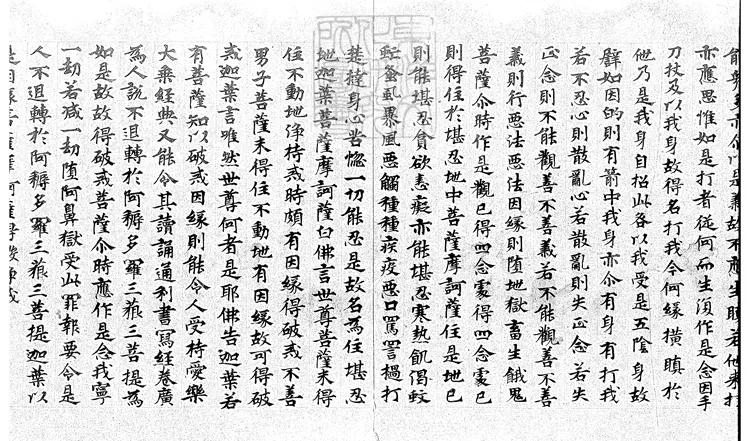 亦尒以是義故應生瞋若他來打
亦應思惟如是打者從何而生須作是念因手
刀杖及以我身故得名打我今何緣橫瞋於
他乃是我身自招此咎以我受是五陰身故
譬如因的則有箭中我身亦尒有身有打我
若不忍心則散亂心若散亂則失正念若失
正念則不能觀善不善義若不能觀善不善
義則行惡法惡法因緣則墮地獄畜生餓鬼
菩薩尒時作是觀已得四念處得四念處已
則得住於堪忍地中菩薩摩訶薩住是地已
則能堪忍貪欲恚癡亦能堪忍寒熱飢渴蚊
虻蚤虱暴風惡觸種種疾疫惡口罵詈撾打
楚撻身心苦惱一切能忍是故名為住堪忍
地迦葉菩薩摩訶薩白佛言世尊菩薩未得
住不動地淨持戒時頗有因緣得破戒不善
男子菩薩未得住不動地有因緣故可得破
戒迦葉言唯然世尊何者是耶佛告迦葉若
有菩薩知以破戒因緣則能令人受持愛樂
大乘經典又能令其讀誦通利書寫經卷廣
為人說不退轉於阿耨多羅三藐三菩提為
如是故故得破戒菩薩尒時應作是念我寧
一劫若減一劫墮阿鼻獄受此罪報要令是
人不退轉於阿耨多羅三藐三菩提迦葉以